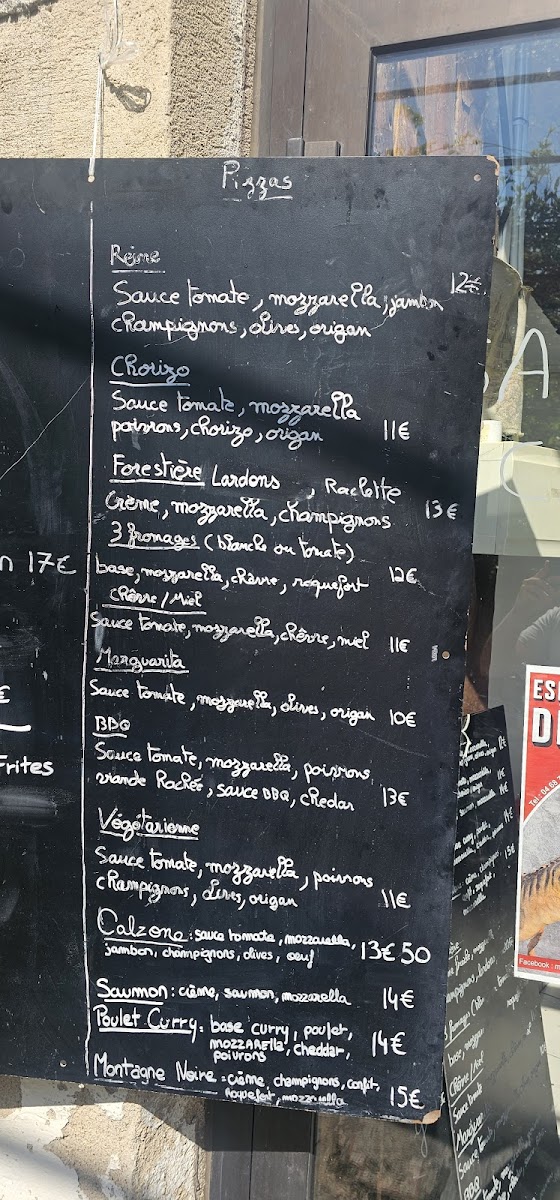 Pizzas
Reine
12€
Sauce tomate, mozzarella, jambon
champignons, olives, origan
Chorizo
Sauce tomate, mozzarella
poivrons, chorizo, origan 11€
Forestière Lardons , Raclette
Crème, mozzarella, champignons 13€
3 fromages (blanche ou tomate)
base, mozzarella, chèvre, roquefort 12€
Chèvre/Miel
Sauce tomate, mozzarella, chèvre, miel 11€
Marguarita
Sauce tomate, mozzarella, olives, origan 10€
BBQ
Sauce tomate, mozzarella, poivrons,
viande hachée, sauce BBQ, chedar 13€
Végétarienne
Sauce tomate, mozzarella, poivrons
champignons, olives, origan 11€
Calzone: sauce tomate, mozzarella,
jambon, champignons, olives, oeuf 13€50
Saumon: crème, saumon, mozzarella 14€
Poulet Curry: base curry, poulet,
mozzarella, cheddar, 14€
poivrons
Montagne Noire: crème, champignons, confit,
Roquefort, mozzarella 15€
n 17€
€
Frites
A
ES
D
Tel: 04 68
Facebook: m